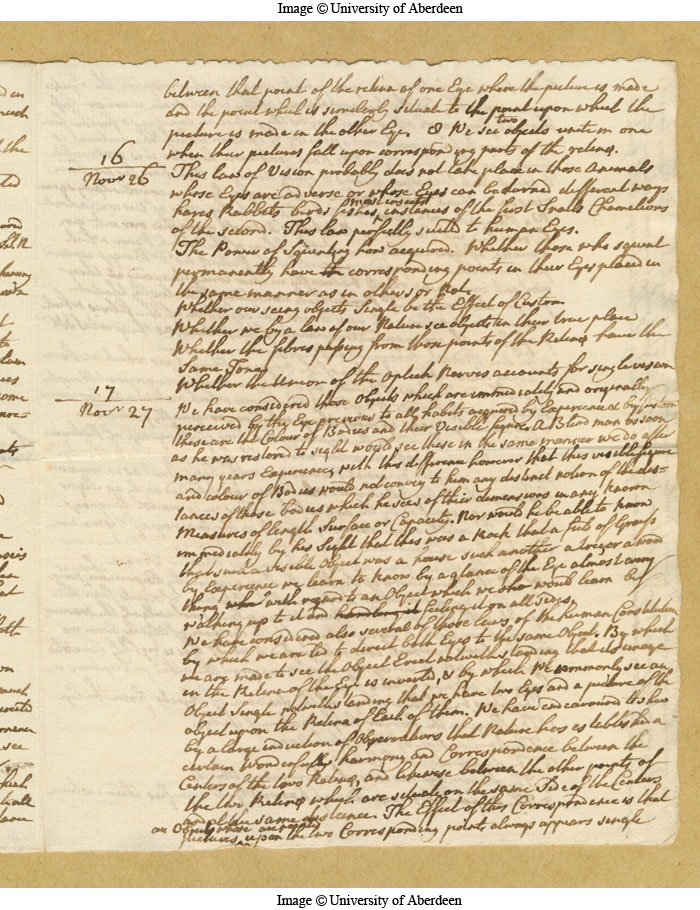 Image © University of Aberdeen
between that point of the retina of one Eye where the picture is made
and the point which is similarly situate to the point upon which the
picture is made in the other Eye. & We see two objects unite in one
when their pictures fall upon corresponding parts of the retinæ.
16
Novr 26
This law of Vision probably does not take place in those Animals
whose Eyes are adverse or whose Eyes can be turned different ways
hares Rabbets birds fishes most insects instances of the first Snails Chameleons
of the second. This law perfectly suited to human Eyes.
The Power of Squinting how acquired. Whether those who squint
permanently have corresponding points in their Eyes placed in
the same manner as in others or not.
Whether our seeing objects Single be the Effect of Custom
Whether we by a law of our Nature see objects in their true place
Whether the fibres passing from those points of the Retinæ have the
same Tone
Whether the Union of the Optick Nerves accounts for single vision
17
Novr 27
We have considered those Objects which are immediately and originally
perceived by the Eye previous to all habits acquired by Experience & by Custom
these are the Colour of Bodies and their Visible figure. A Blind man as soon
as he was restored to sight would see these in the same manner we do after
many years Experience, with this difference however that this visible figure
and colour of Bodies would not convey to him any distinct notion of the dis=
tances of those bodies which he sees of their dimensions in any known
Measures of length Surface or Capacity. Nor would he be able to know
immediately by his Sight that this was a Rock that a of Grass
that such a visible object was a house such another a tree or a wood
by Experience we learn to know by a glance of the Eye almost every
thing with regard to an Object which we would learn by
walking up to it and handling it feeling it on all sides.
We have considered also several of those laws of the human Constitution
by which we are led to direct both Eyes to the same Object. By which
we are made to see the Object Erect notwithstanding that its image
in the Retina of the Eye is inverted, & by which We commonly see an
Object Single notwithstanding that we have two Eyes and a picture of the
object upon the Retina of Each of them. We have endeavoured to shew
by a large induction of Observations that Nature has established a
certain Wonderfull harmony and Correspondence between the
Centers of the two Retinæ, and likewise between the other points of
the two Retinæ which are situate on the same Side of the Centers
and at the same distance. The Effect of this Correspondence is that
an Object whose
pictures upon the two Corresponding points always appears single
Image © University of Aberdeen